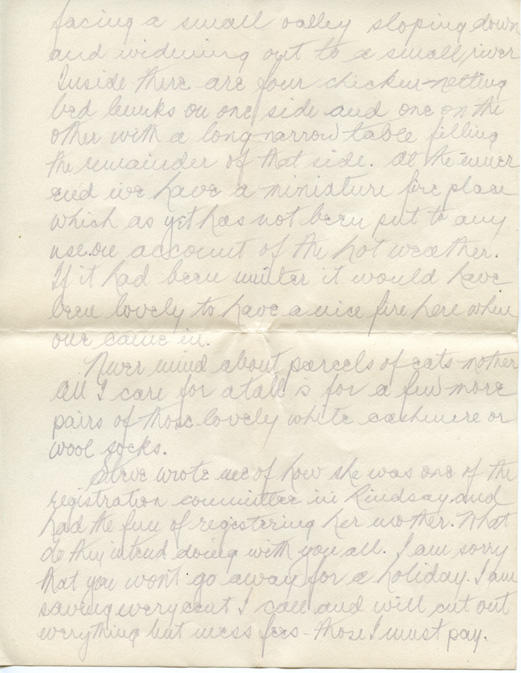 facing a small valley sloping down
and widening out to a small river
Inside there are four chicken-netting
bed bunks on one side and one on the
other with a long narrow table filling
the remainder of that side. At the inner
end we have a miniature fire place
which as yet has not been put to any
use on account of the hot weather.
If it had been winter it would have
been lovely to have a nice fire here when
one came in.
Never mind about parcels of eats mother
All I care for atall is for a few more
pairs of those lovely white cashmere or
wool socks.
wrote me of how she was one of the
registration committee in Lindsay and
had the fun of registering her mother. What
do they intend doing with you all. I am sorry
that you won't go away for a holiday. I am
saving every cent I can and will cut out
everything but mess fees - those I must pay.